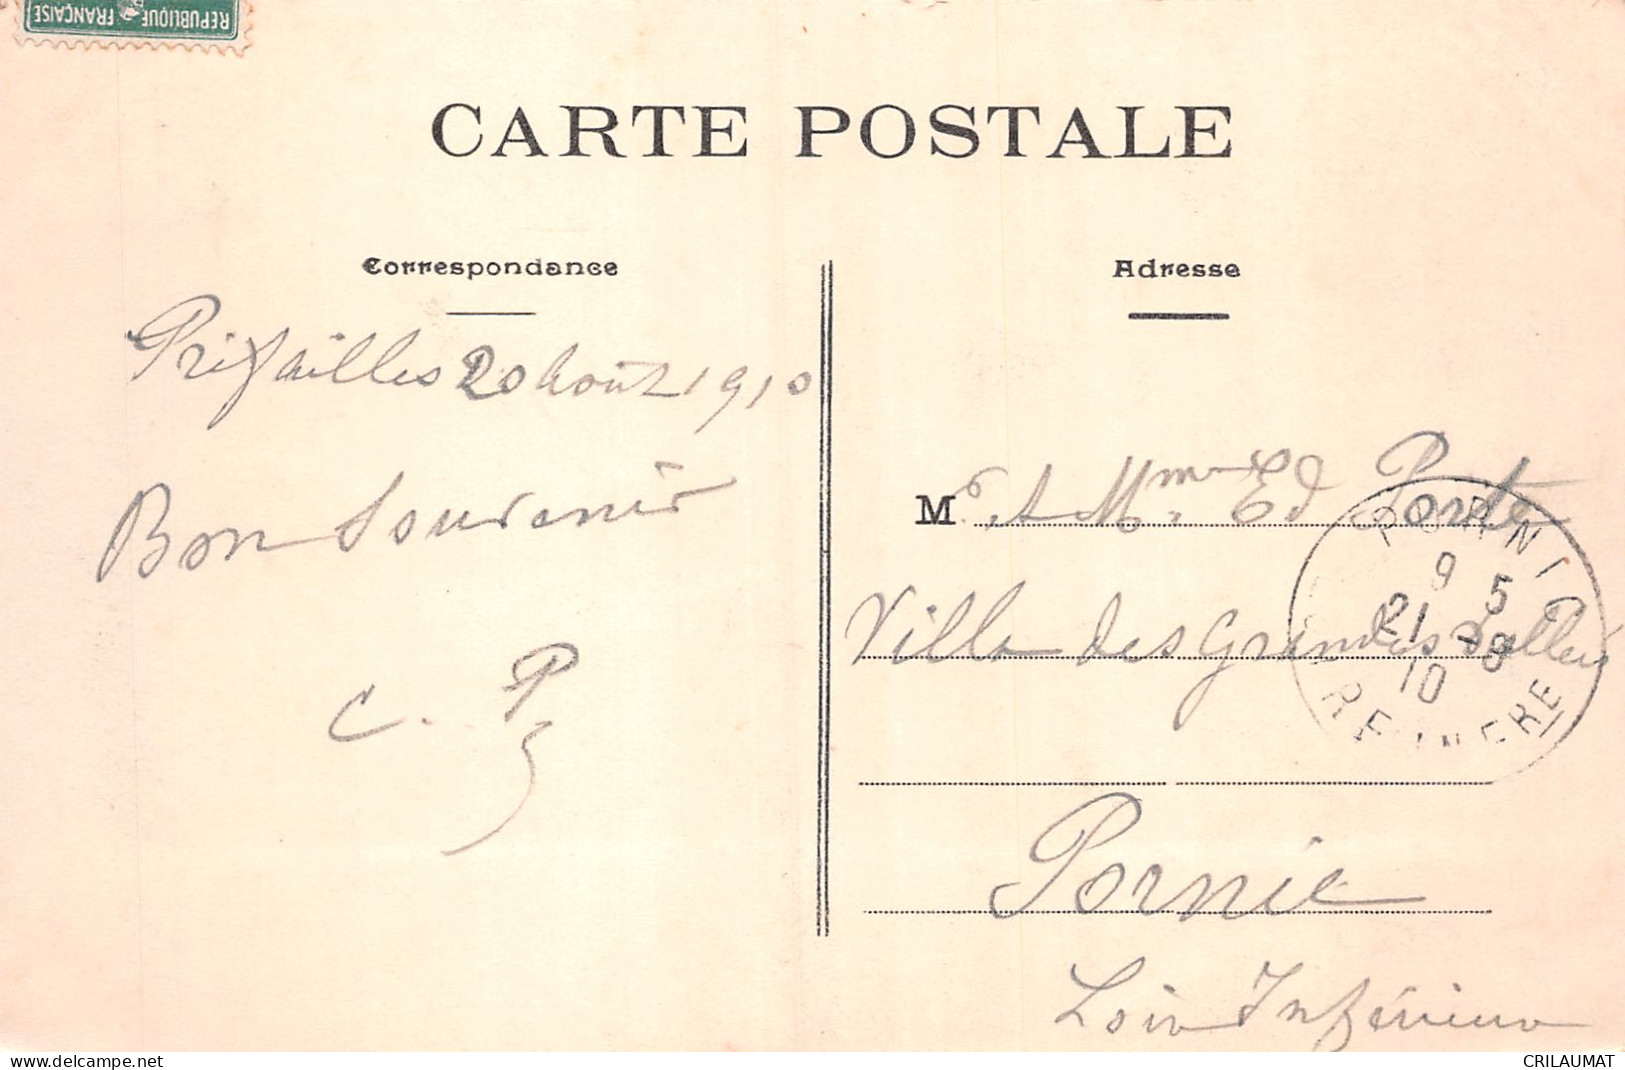 REPUBLIQUE FRANÇAISE
CARTE POSTALE
Correspondance
Adresse
Préfailles 20 Août 1910
Bon Souvenir
C. P
M. et Mme Ed Porte
Villa des Grandes Vallées
Pornic
Loire Inférieure
PORNIC
9 5
21 -8
10
LRE INFRE
CRILAUMAT